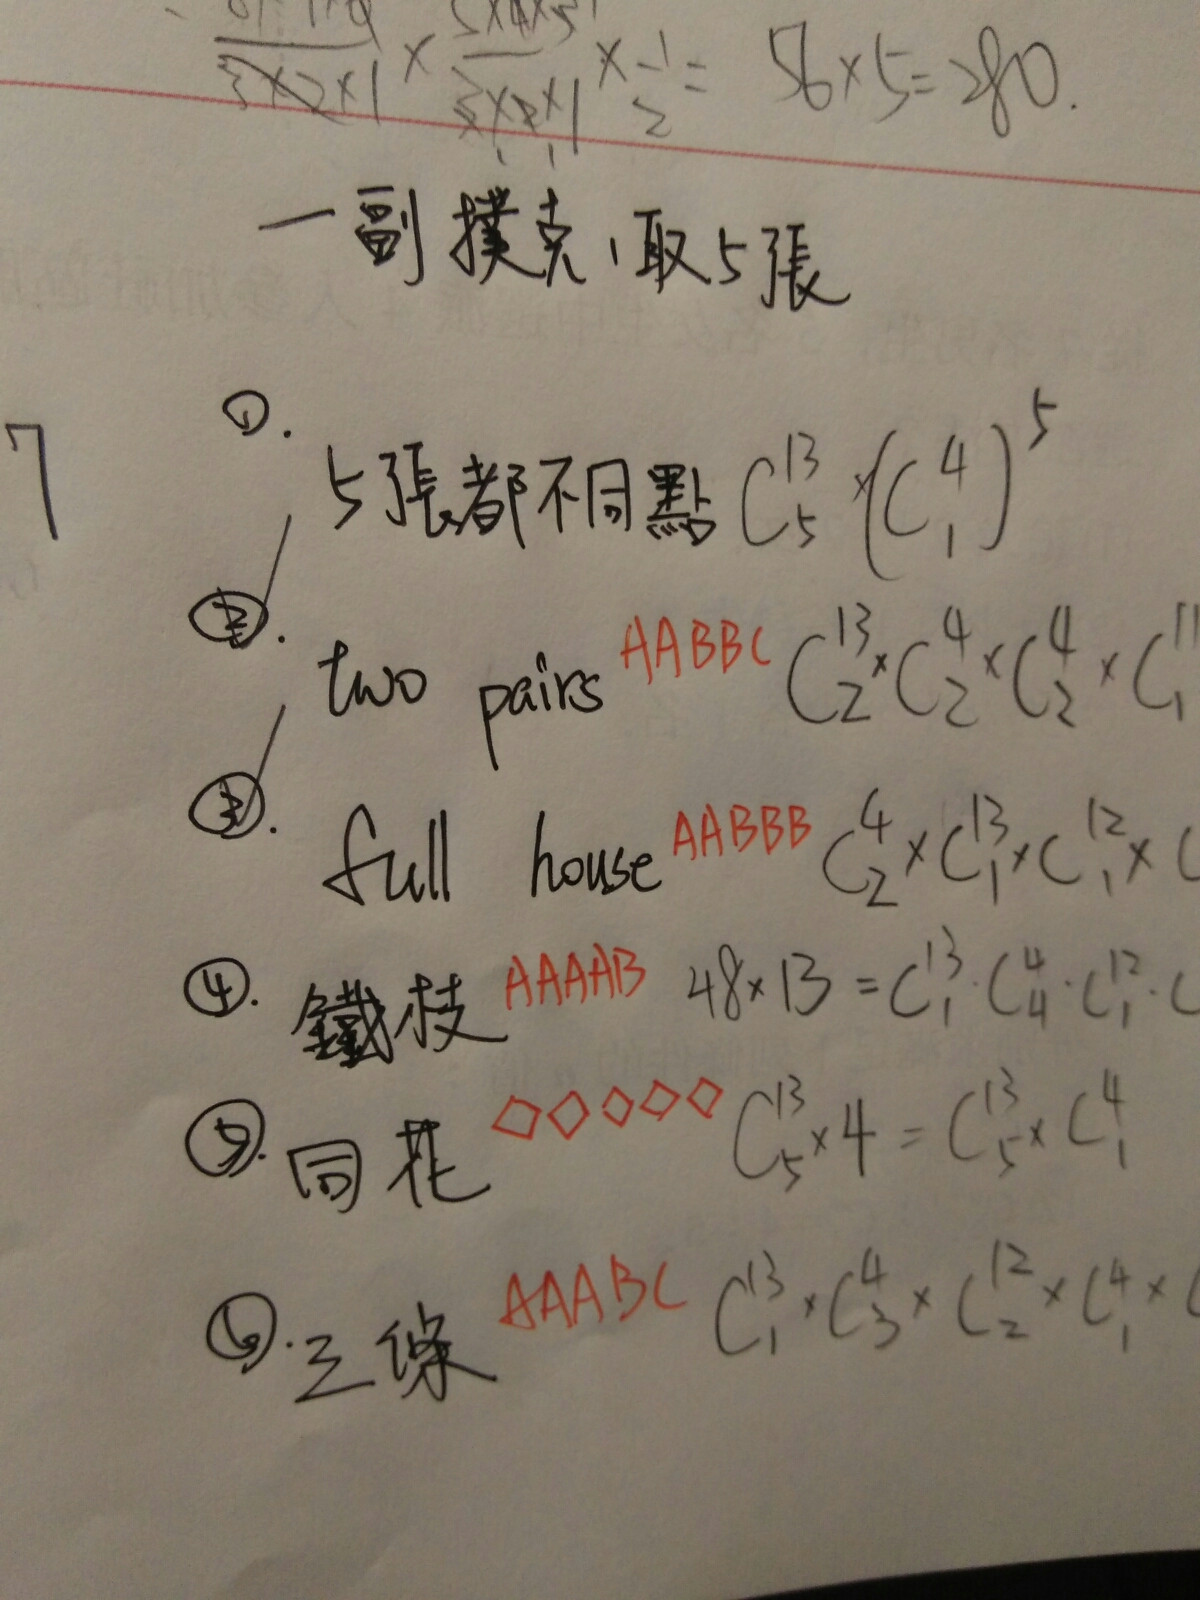 3×2×1 × 5×4×3 3×2×1 × 1 2 = 56×5=280.
一副撲克,取5張
7
①. 5張都不同點 C¹³₅ × (C⁴₁)⁵
②. two pairs AABBC C¹³₂ × C⁴₂ × C⁴₂ × C¹¹₁
③. full house AABBB C⁴₂ × C¹³₁ × C¹²₁ × C
④. 鐵枝 AAAAB 48×13 = C¹³₁ · C⁴₄ · C¹²₁ · C
⑤. 同花 ◇◇◇◇◇ C¹³₅ × 4 = C¹³₅ × C⁴₁
⑥. 三條 AAABC C¹³₁ × C⁴₃ × C¹²₂ × C⁴₁ × C